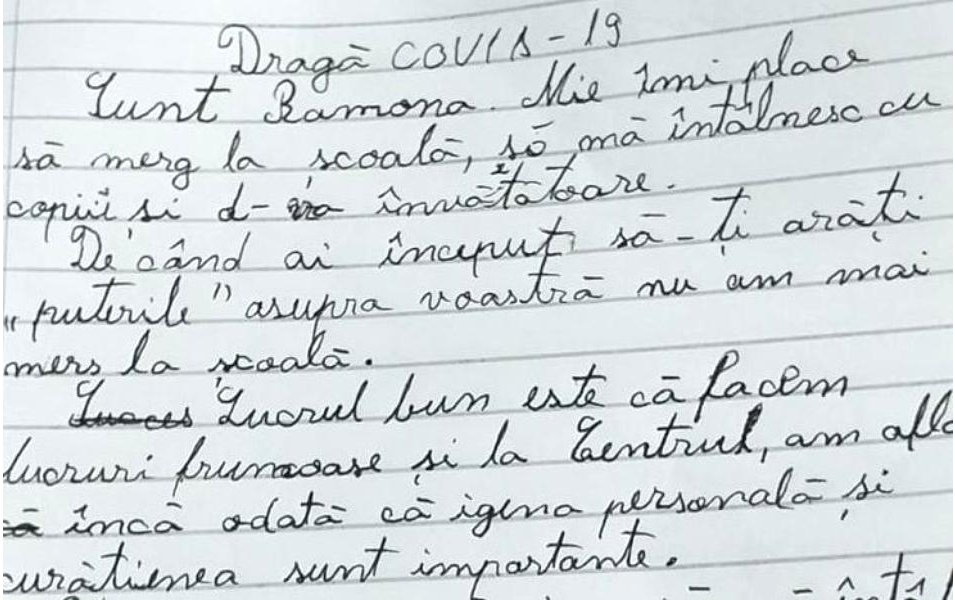 Dragă COVID-19
Sunt Ramona. Mie îmi place
să merg la școală, să mă întâlnesc cu
copiii si d-ra învățătoare.
De când ai început să-ți arăți
„puterile" asupra voastră nu am mai
mers la școală.
Lucrul bun este că facem
lucruri frumoase și la Centrul, am afla
încă odată că igena personală și
curătienea sunt importante.